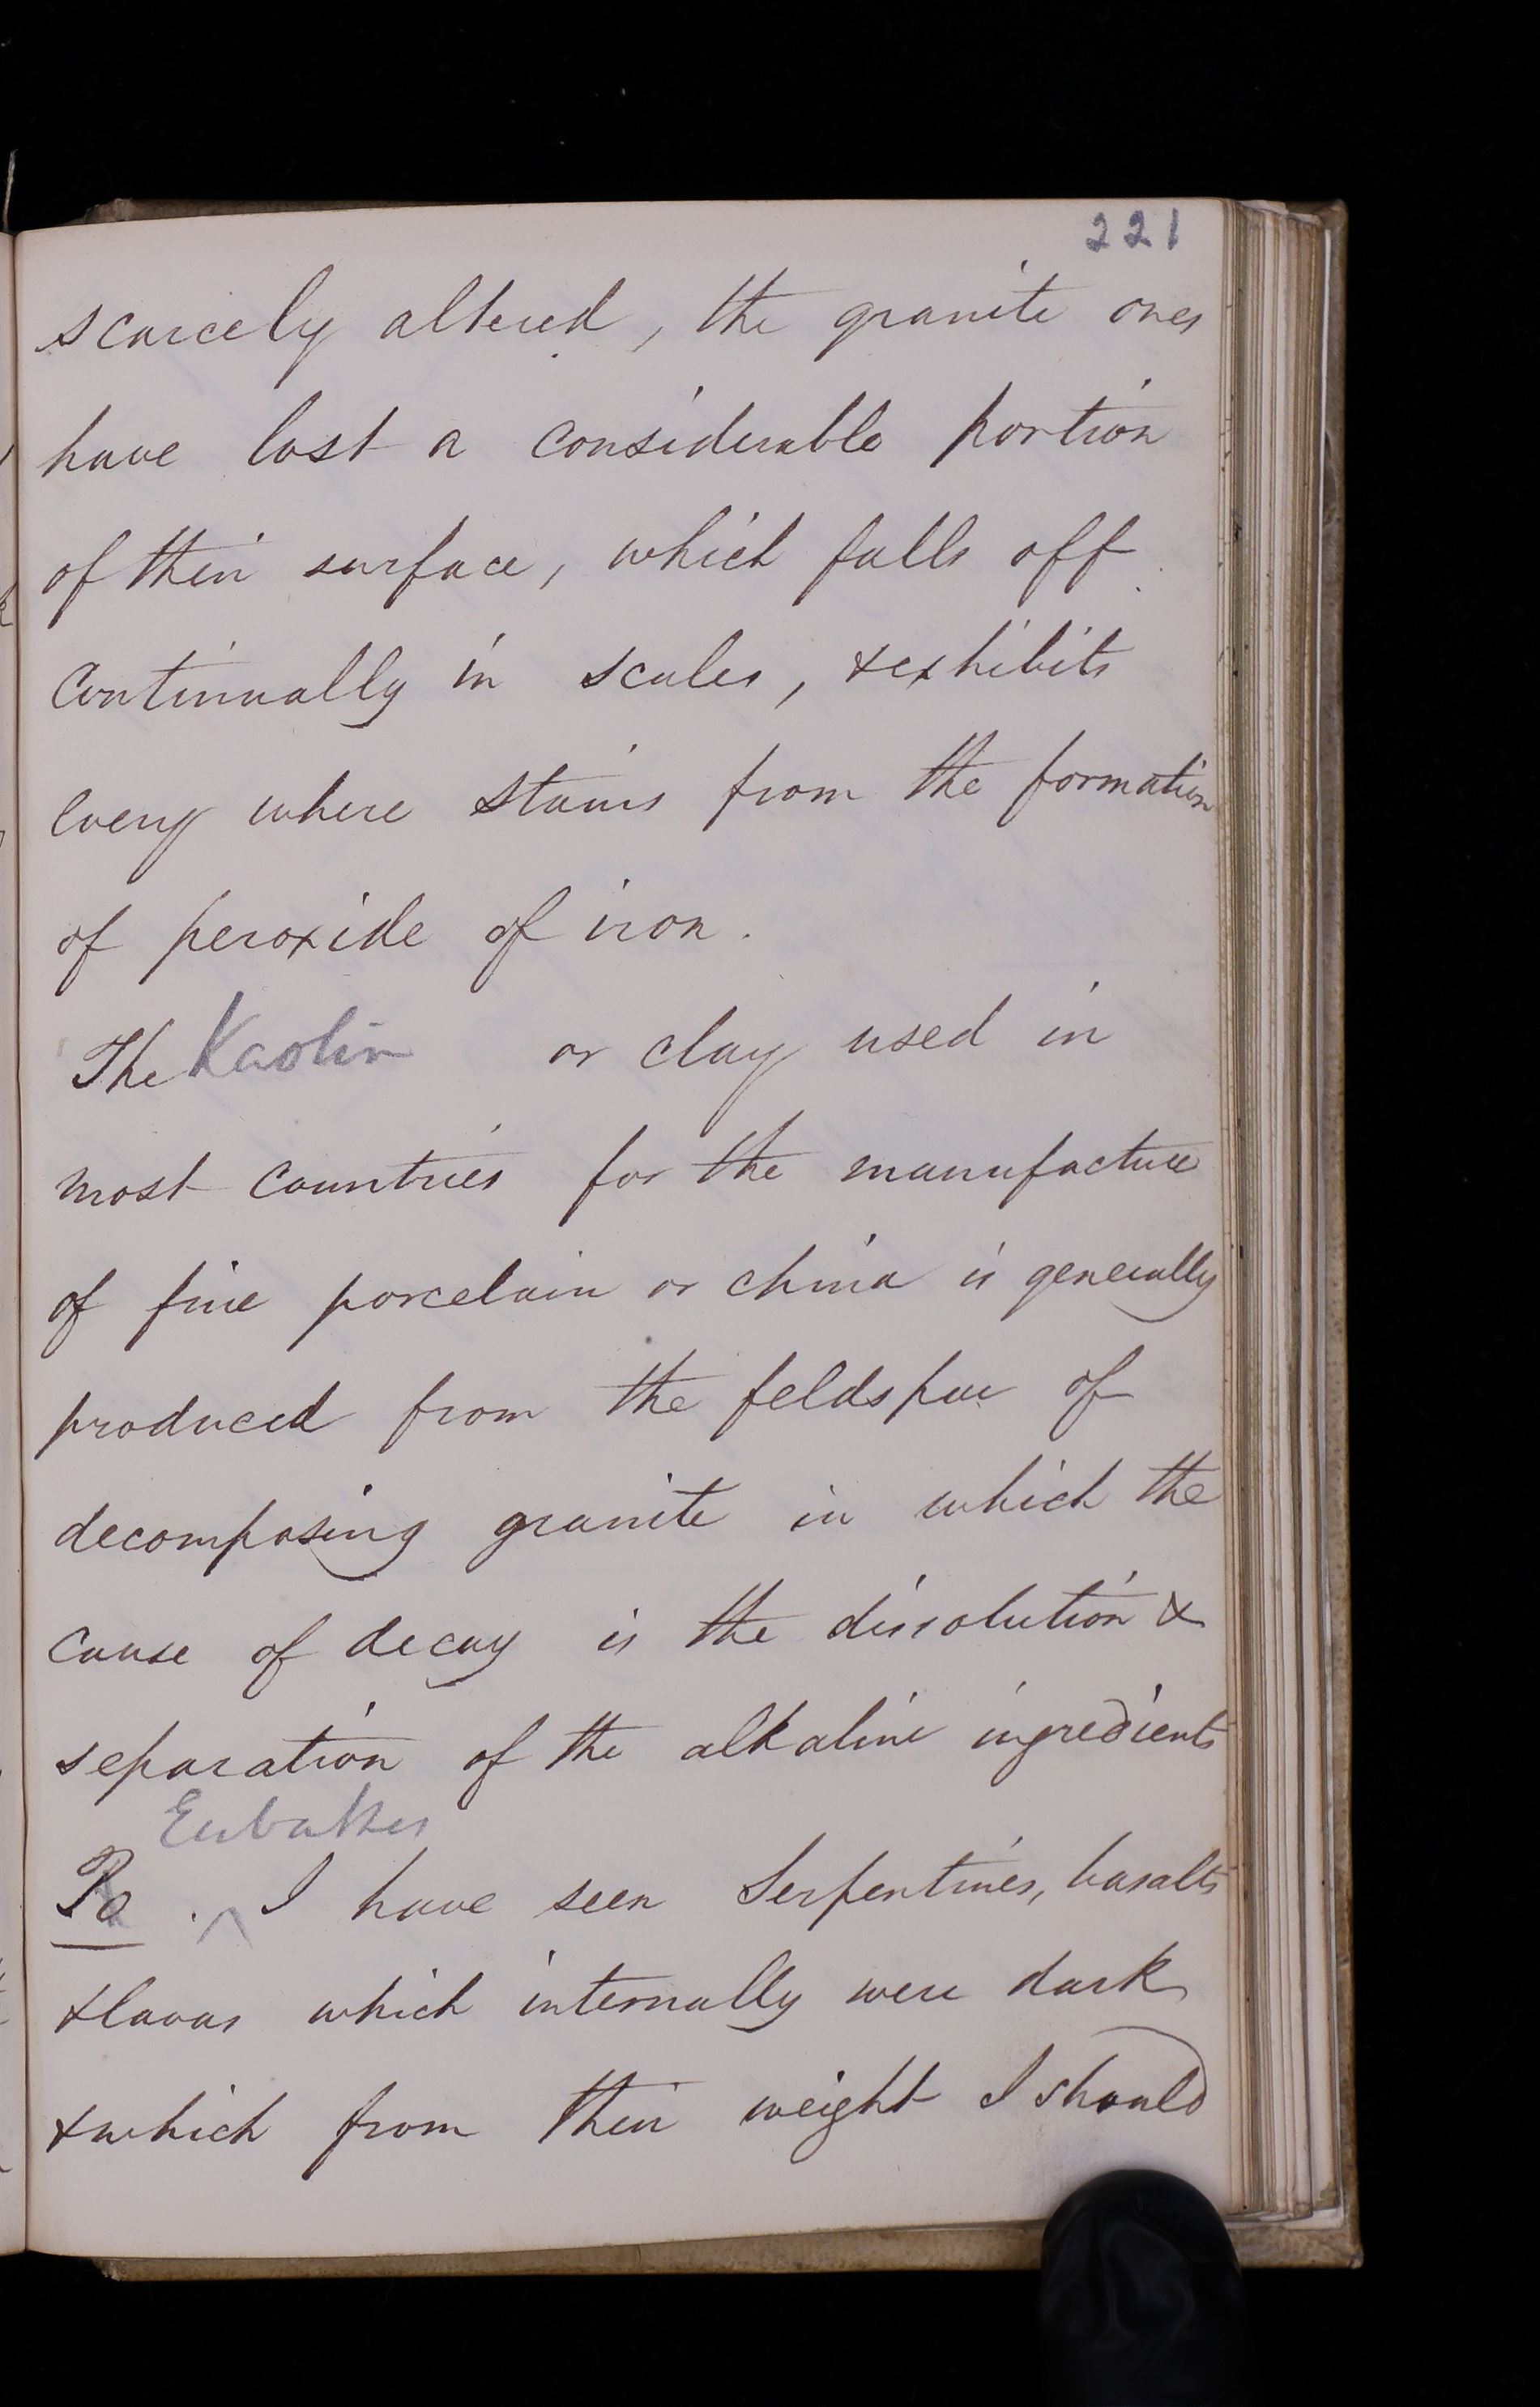 221
scarcely altered, the granite ones
have lost a considerable portion
of their surface, which falls off
continually in scales, & exhibits
every where stains from the formation
of peroxide of iron.
The Kaolin or clay used in
most countries for the manufacture
of fine porcelain or china is generally
produced from the feldspar of
decomposing granite in which the
cause of decay is the dissolution &
separation of the alkaline ingredients
Eubathes
I have seen Serpentines, basalts
& lavas which internally were dark
& which from their weight I should